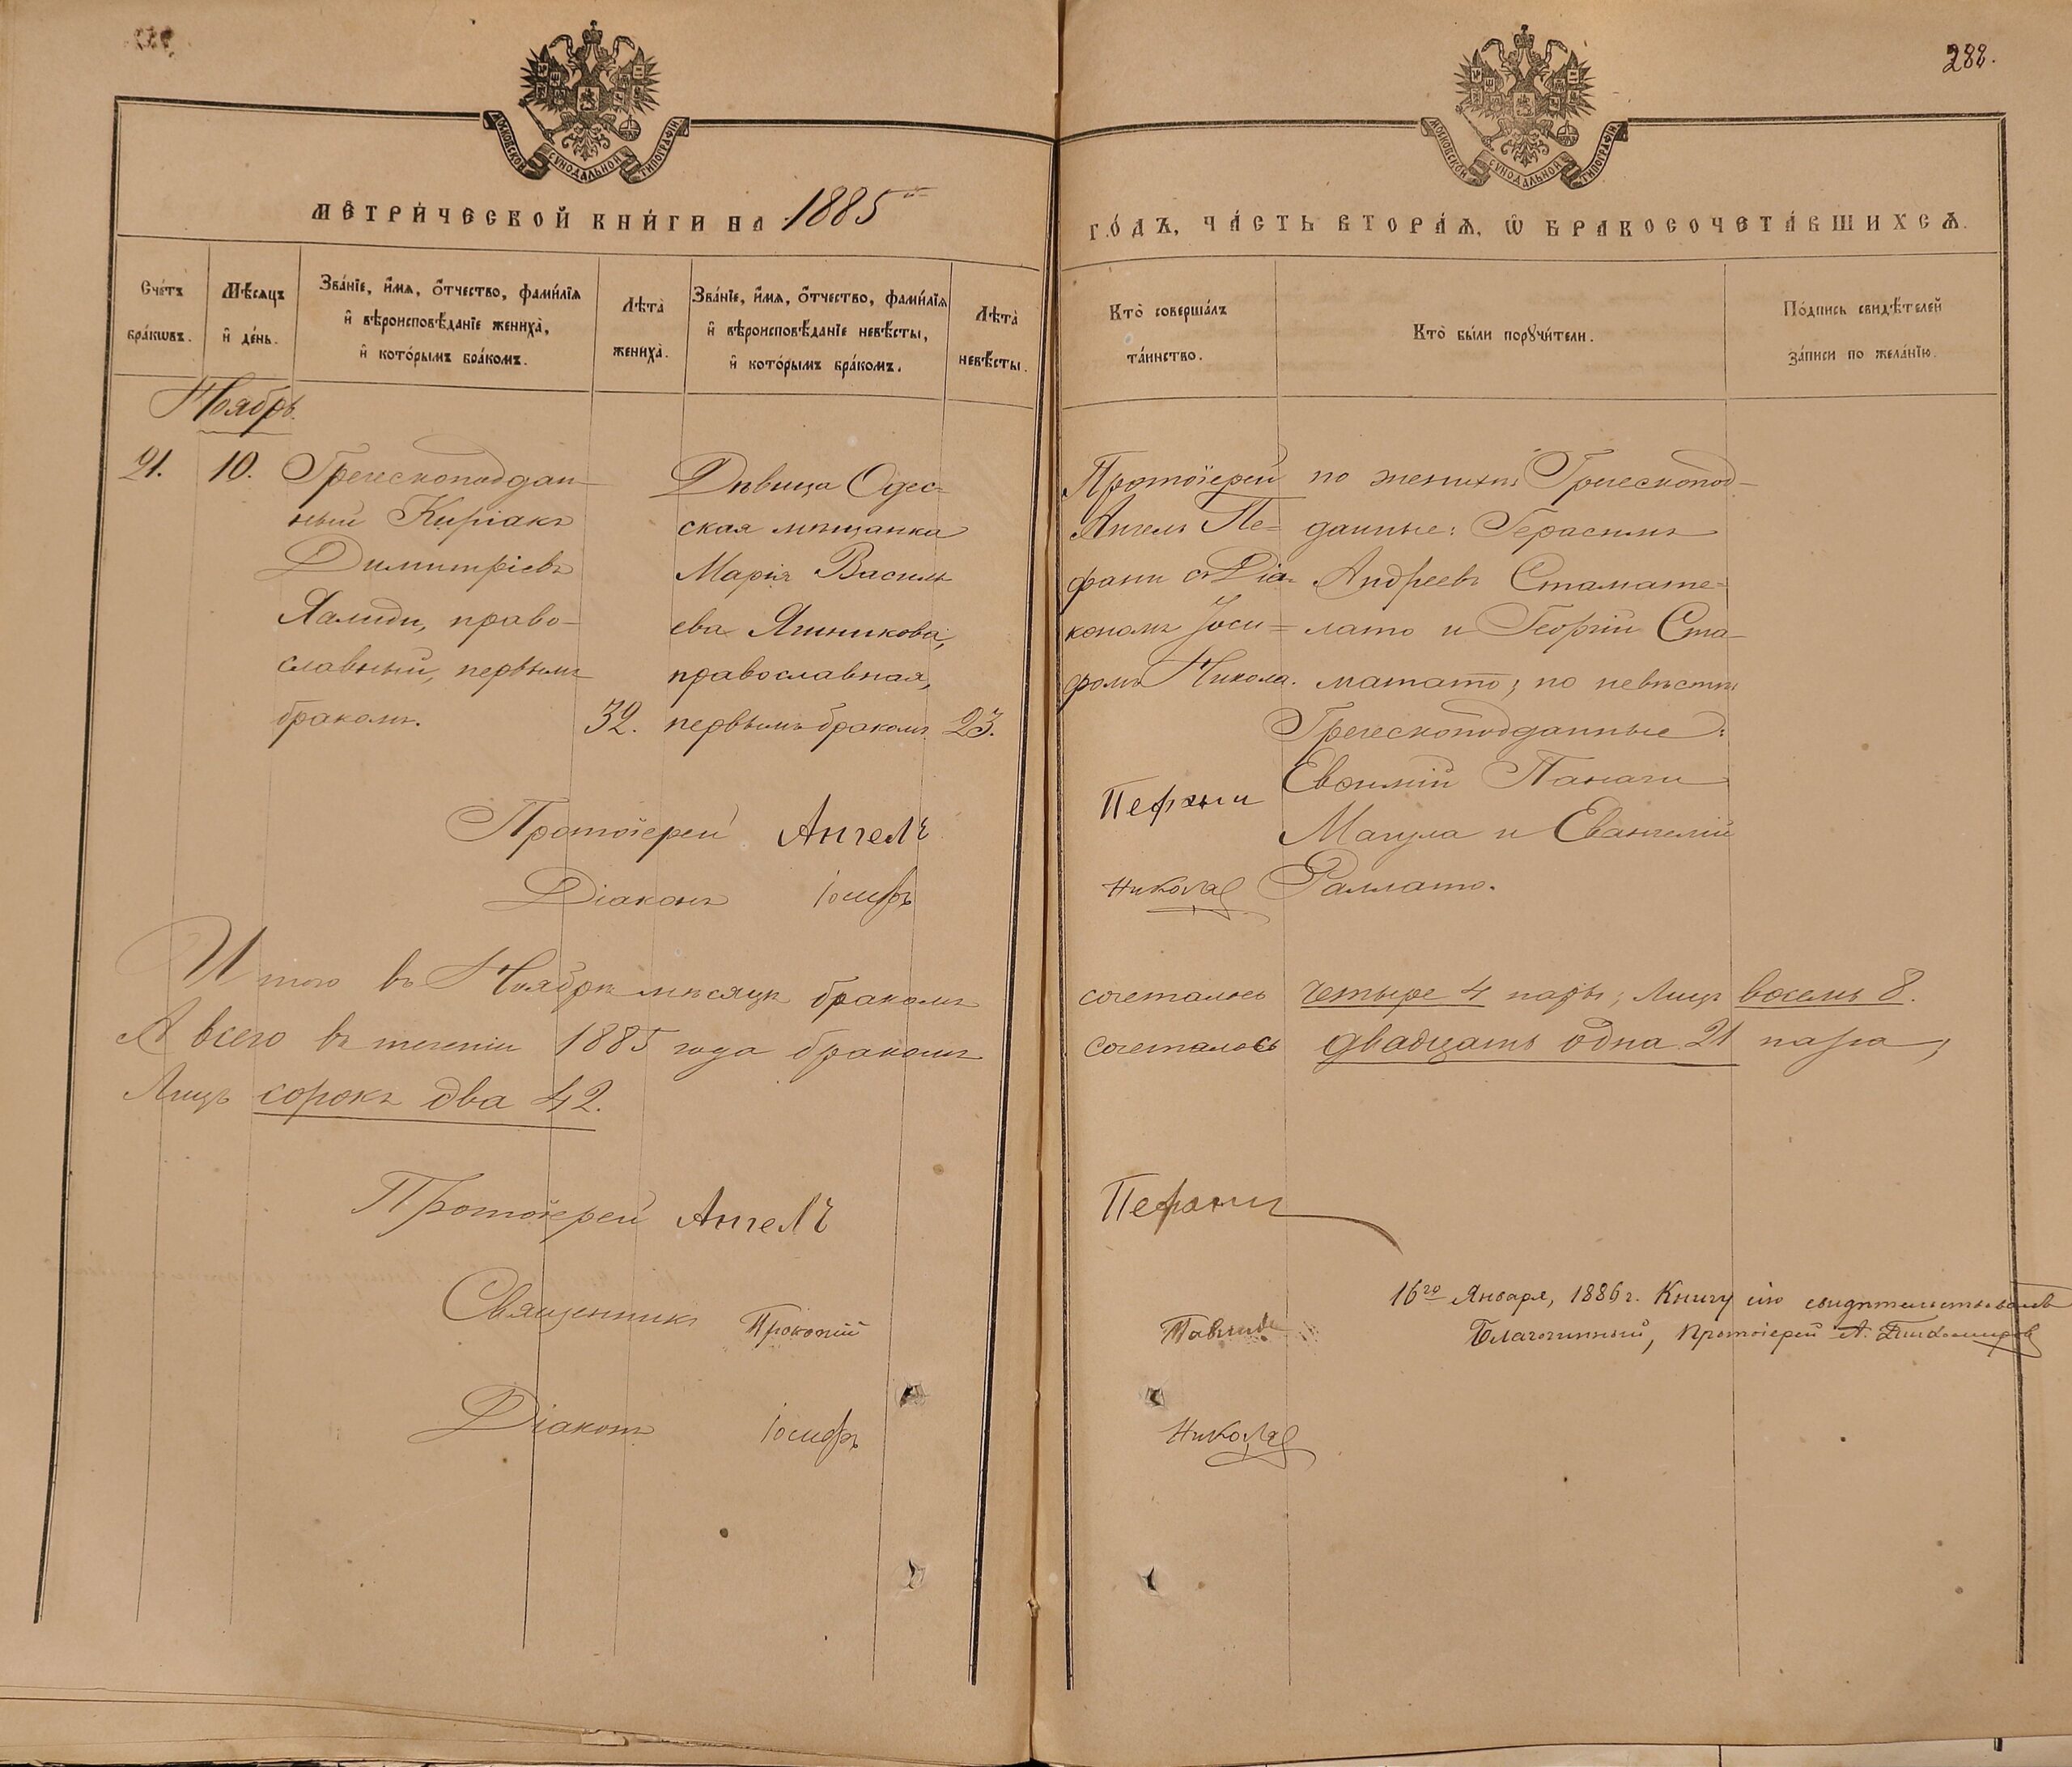 288.
МОСКОВСКОЙ СѴНОДАЛЬНОЙ ТИПОГРАФІИ
МОСКОВСКОЙ СѴНОДАЛЬНОЙ ТИПОГРАФІИ
МЕТРИ́ЧЕСКОЙ КНИ́ГИ НА 1885й
ГО́ДЪ, ЧА́СТЬ ВТОРА́Ѧ, Ѽ БРАКОСОЧЕТА́ВШИХСѦ.
Сче́тъ бра́кѡвъ.
Мѣ́сяцъ и҆ де́нь.
Зва́нїе, и҆́мя, ѻ҆́тчество, фами́лїя
и҆ вѣроисповѣ́данїе жениха̀,
и҆ кото́рымъ бра́комъ.
Лѣта̀ жениха̀.
Зва́нїе, и҆́мя, ѻ҆́тчество, фами́лїя
и҆ вѣроисповѣ́данїе невѣ́сты,
и҆ кото́рымъ бра́комъ.
Лѣта̀ невѣ́сты.
Кто̀ соверша́лъ
та́инство.
Кто̀ бы́ли порꙋчи́тели.
По́дпись свидѣ́телей
за́писи по жела́нїю.
Ноябрь.
21.
10.
Греческоподдан-
ный Киріакъ
Димитріевъ
Халиди, право-
славный, первымъ
бракомъ.
32.
Дѣвица Одес-
ская мѣщанка
Марія Василь
ева Ячникова,
православная,
первымъ бракомъ.
23.
Протоіерей
Ангелъ Пе=
фани съ Діа-
кономъ Іоси=
фомъ Никола.
по женихѣ Греческопод-
данные: Герасимъ
Андреевъ Стамате-
лато и Георгій Ста-
матато; по невѣстѣ
Греческоподданные:
Евѳимій Панаги
Магула и Евангелій
Раллато.
Протоіерей Ангелъ Пефани
Діаконъ Іосифъ Никола
Итого въ Ноябрѣ мѣсяцѣ бракомъ сочеталось четыре 4 пары; Лицъ восемь 8.
А всего въ теченіи 1885 года бракомъ сочеталось двадцать одна 21 пара;
Лицъ сорокъ два 42.
Протоіерей Ангелъ Пефани
Священникъ Прокопій
Діаконъ Іосифъ Никола
16го Января, 1886 г. Книгу сію свидѣтельствовалъ
Благочинный, Протоіерей А.